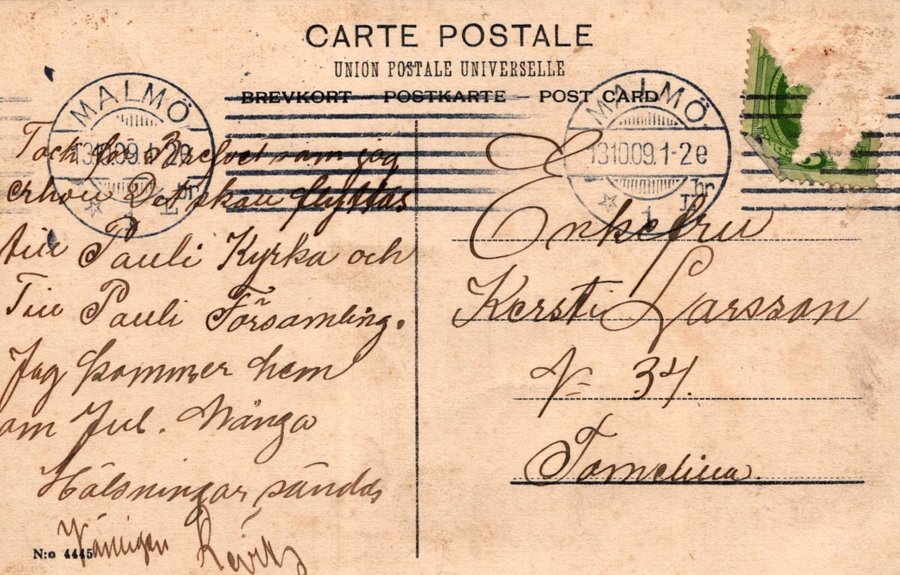 CARTE POSTALE
UNION POSTALE UNIVERSELLE
BREVKORT POSTKARTE POST CARD
MALMÖ
13 10 09. 1-2 e
1 br
MALMÖ
13 10 09. 1-2 e
1 br
Tack för som jag
Det skall flyttas
till Pauli Kyrka och
Till Pauli Församling.
Jag kommer hem
om Jul. Många
Hälsningar sändas
Vänligen
N:o 4445
Enkefru
Kersti Larsson
N 34.
Tomelilla.